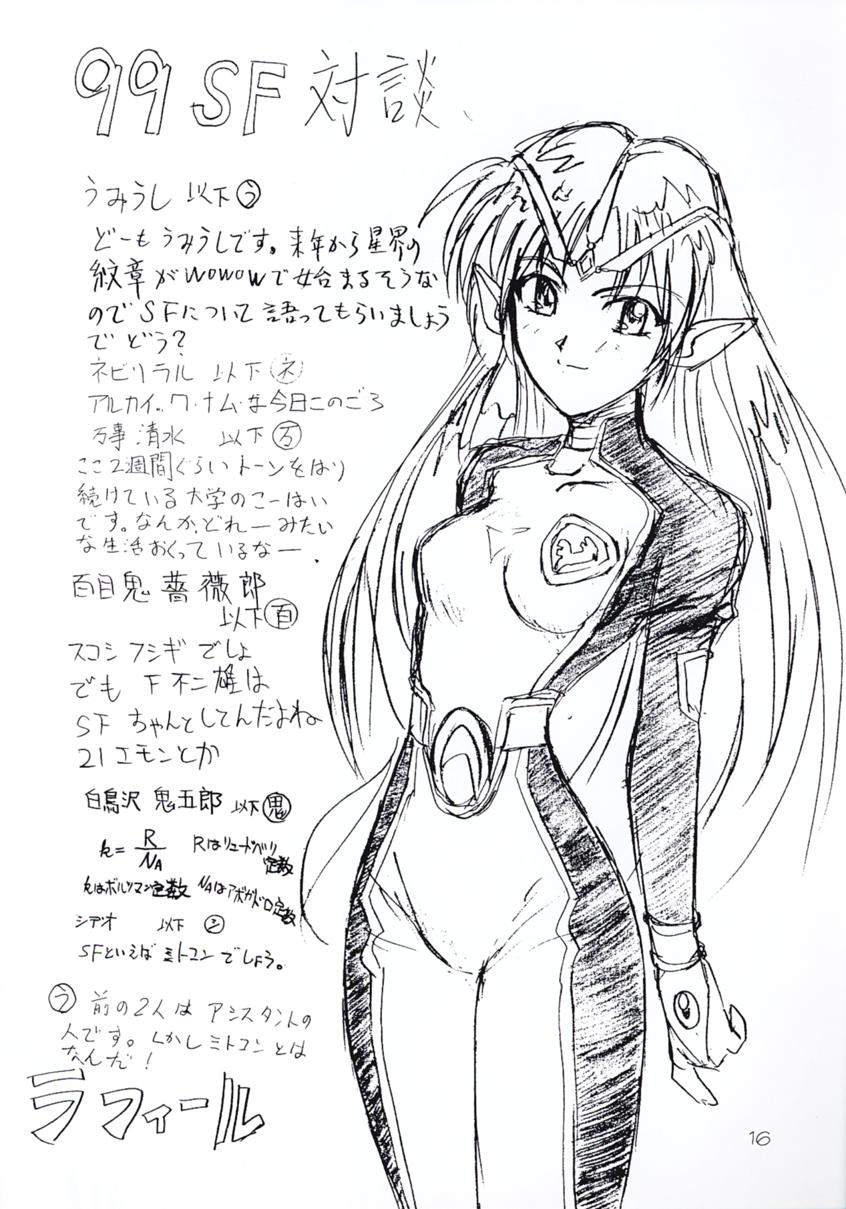 99 SF 対談、
うみうし 以下う
どーもうみうしです。来年から星界の
紋章がWOWOWで始まるそうな
のでSFについて語ってもらいましょう
でどう?
ネビリラル 以下ネ
アルカイ、ワ・ナム・な今日このごろ
万事清水 以下万
ここ2週間ぐらいトーンをはり
続けている大学のこーはい
です。なんかどれーみたい
な生活おくっているなー.
百目鬼 薔薇郎
以下百
スコシ フシギ でしょ
でも F不二雄は
SF ちゃんとしてんだよね
21エモンとか
白鳥沢 鬼五郎 以下鬼
k=R/NA Rはリュードベリ
定数
kはボルツマン定数 NAはアボガドロ定数
シデオ 以下シ
SFといえば ミトコン でしょう。
う 前の2人は アシスタントの
人です。しかしミトコンとは
なんだ!
ラフィール
16